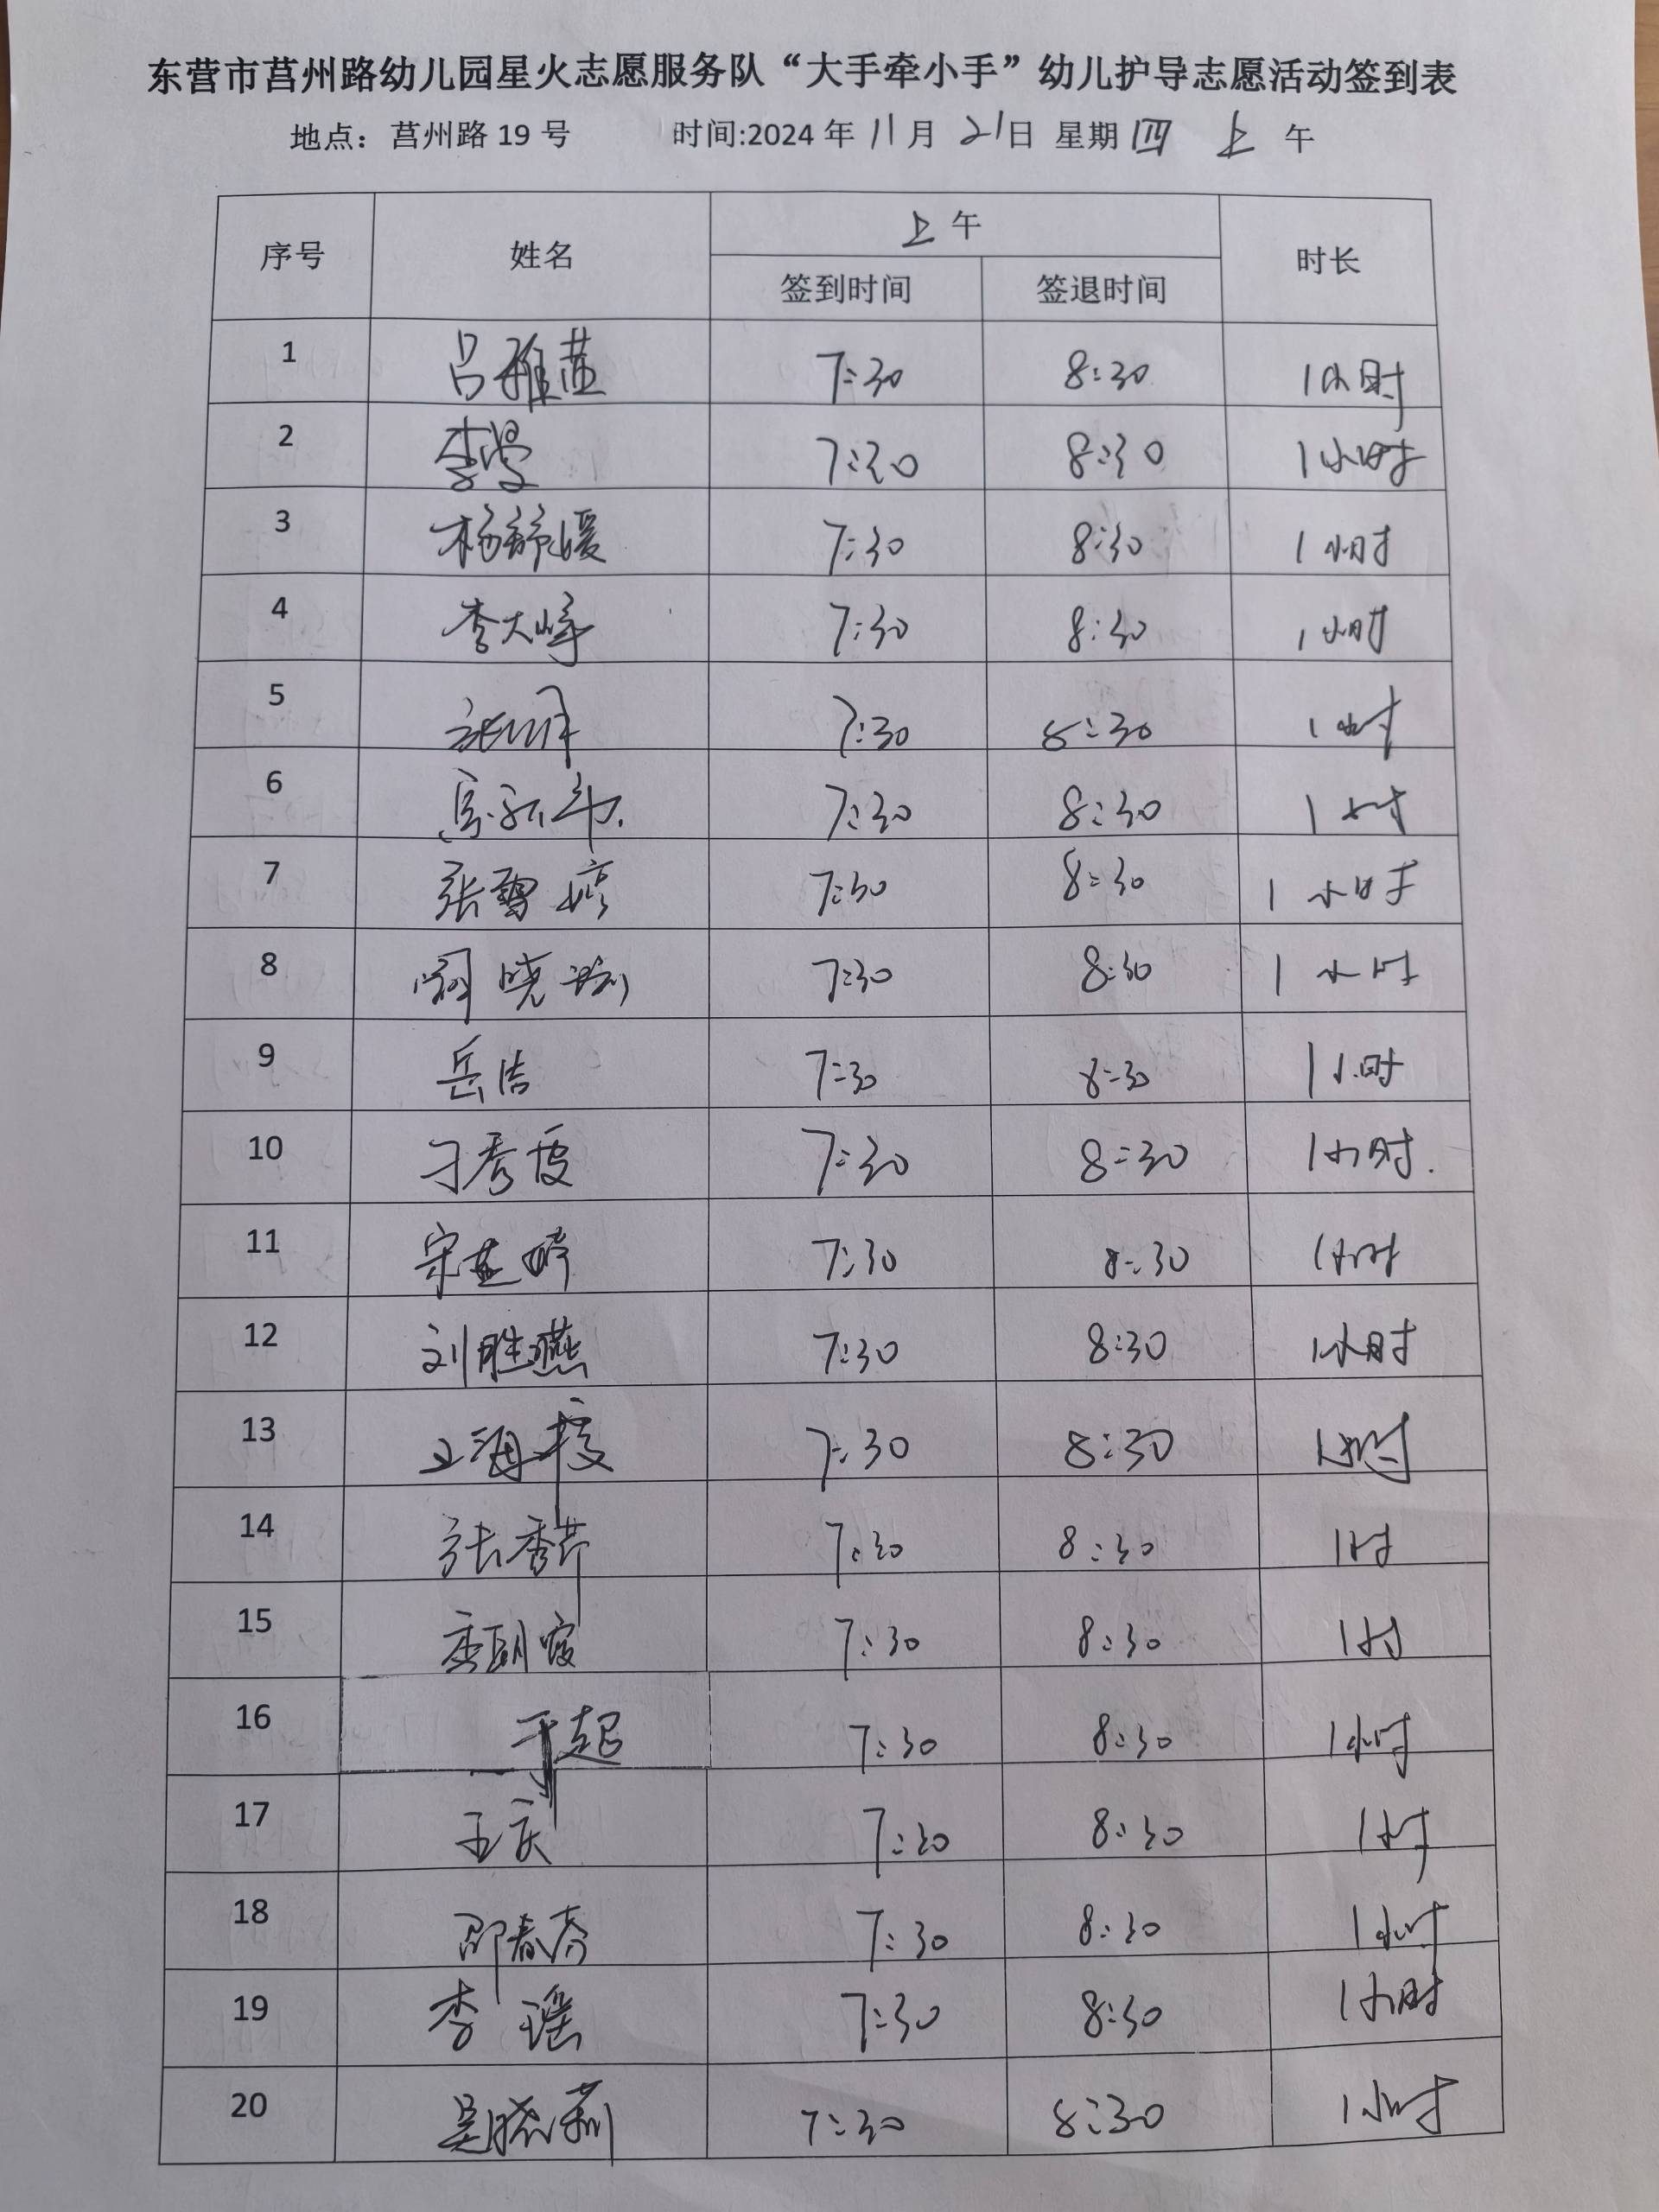 东营市莒州路幼儿园星火志愿服务队“大手牵小手”幼儿护导志愿活动签到表
地点：莒州路 19 号 时间:2024 年 11 月 21 日 星期 四 上 午
序号 姓名 上 午 时长
签到时间 签退时间
1 吕雅 7:30 8:30 1小时
2 李曼 7:30 8:30 1小时
3 杨舒媛 7:30 8:30 1小时
4 李大峰 7:30 8:30 1小时
5 7:30 8:30 1小时
6 7:30 8:30 1小时
7 张雪婷 7:30 8:30 1小时
8 晓 7:30 8:30 1小时
9 岳洁 7:30 8:30 1小时
10 刁秀霞 7:30 8:30 1小时.
11 宋孟婷 7:30 8:30 1小时
12 刘胜燕 7:30 8:30 1小时
13 王海 7:30 8:30 1小时
14 张秀芹 7:30 8:30 1时
15 7:30 8:30 1时
16 于起 7:30 8:30 1小时
17 王庆 7:30 8:30 1小时
18 邵春香 7:30 8:30 1小时
19 李瑶 7:30 8:30 1小时
20 吴晓莉 7:30 8:30 1小时